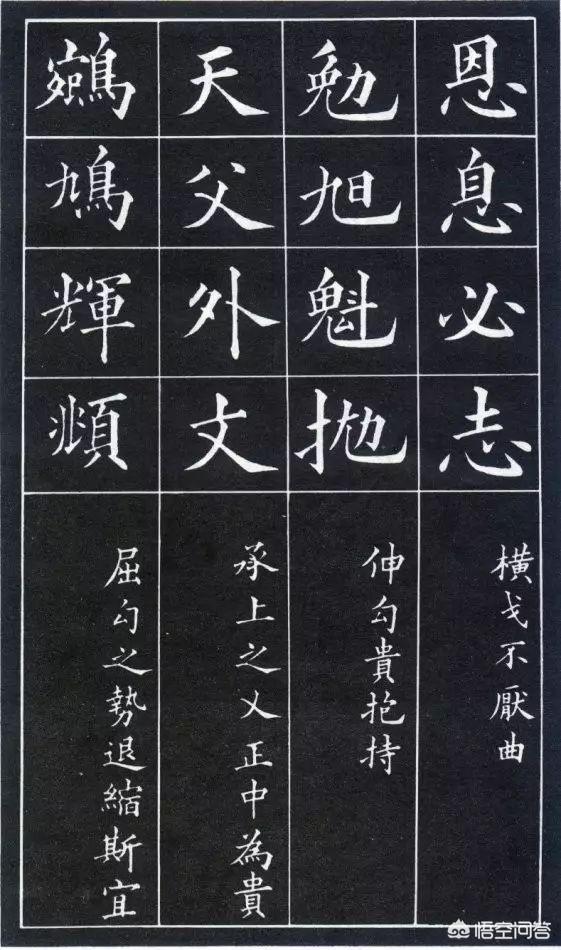 恩息必志
橫戈不厭曲
勉旭魁抛
伸勾貴抱持
天父外丈
承上之乂正中為貴
鵷鳩輝頫
屈勾之勢退縮斯宜
悟空问答